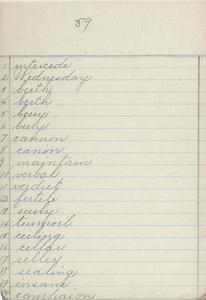 59
1 intercede
2 Wednesday
3 berth
4 birth
5 berry
6 bury
7 cannon
8 canon
9 maintain
10 verbal
11 verdict
12 fertile
13 surly
14 turmoil
15 ceiling
16 cellar
17
18 sealing
19 insane
campaign